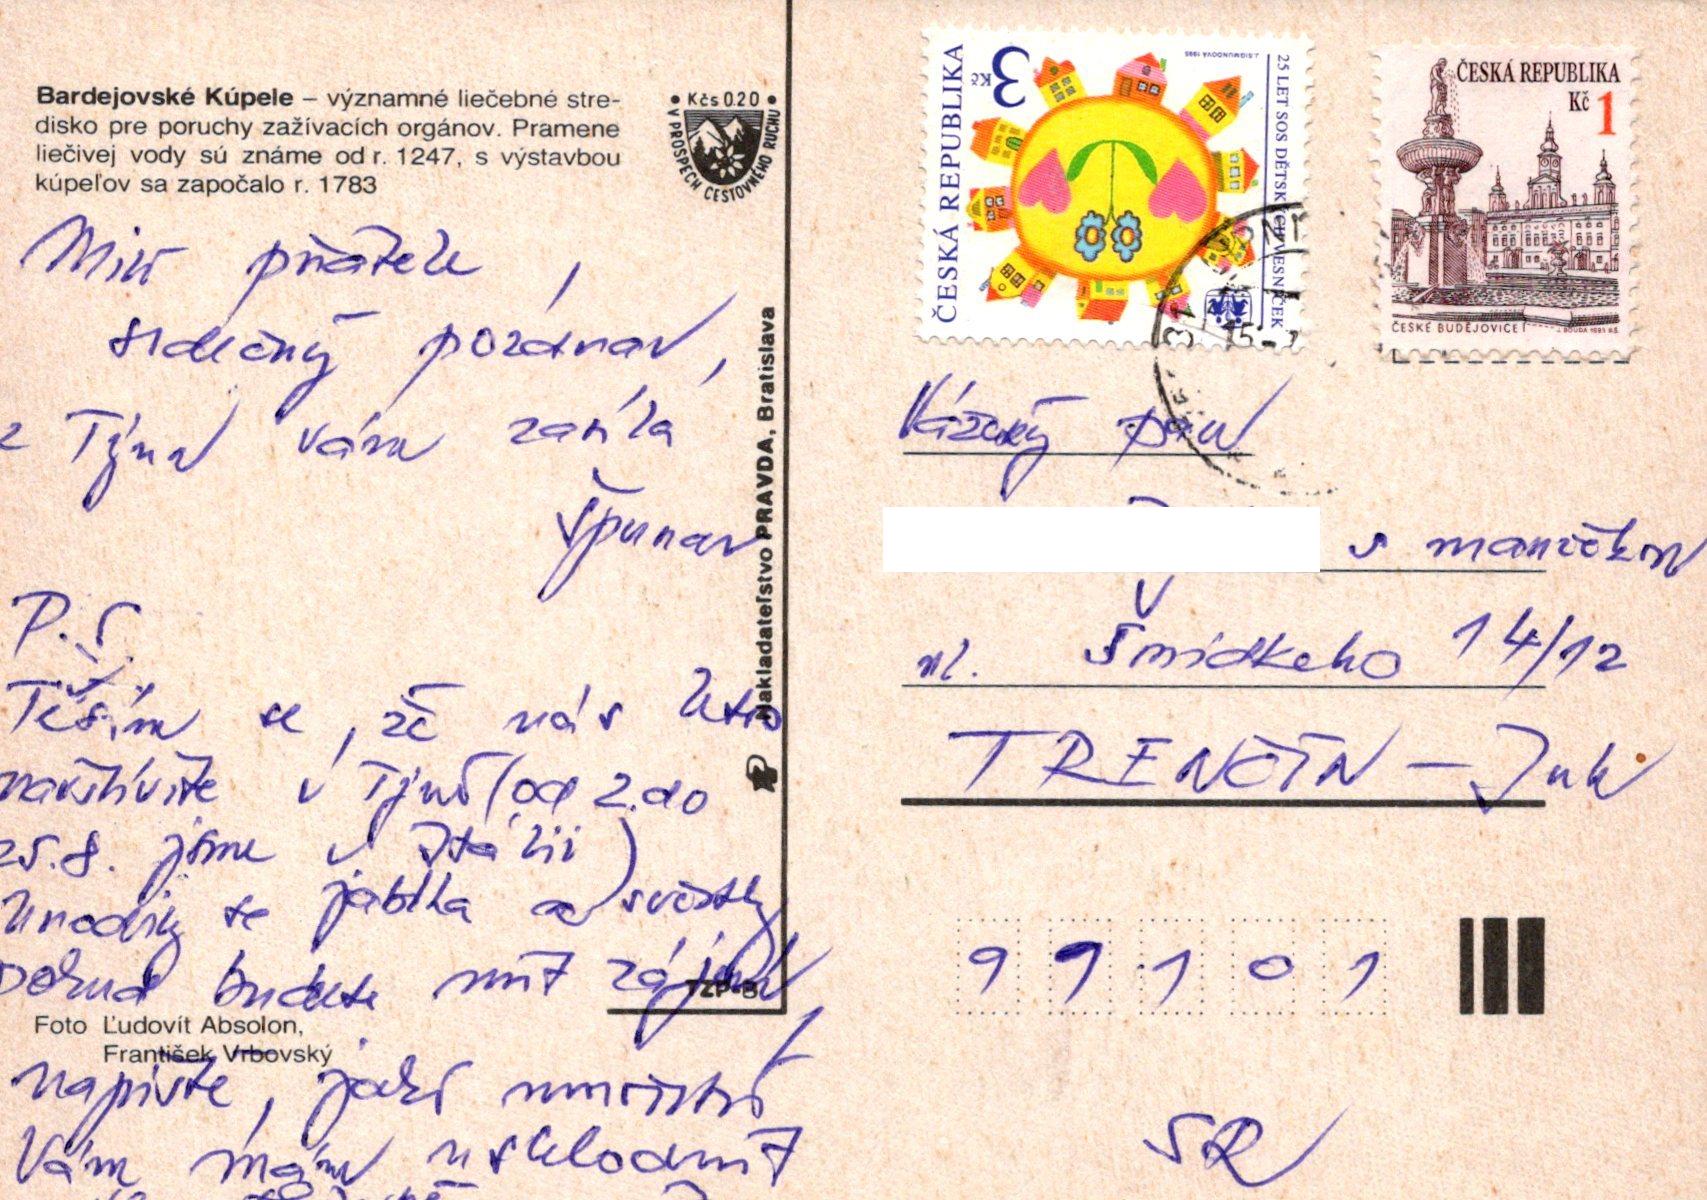 Bardejovské Kúpele – významné liečebné stre-
disko pre poruchy zažívacích orgánov. Pramene
liečivej vody sú známe od r. 1247, s výstavbou
kúpeľov sa započalo r. 1783
• Kčs 0.20 •
V PROSPECH CESTOVNÉHO RUCHU
Milí přátelé,
srdečný pozdrav,
z Týna vám zasílá
Špunar
P.S.
Těším se, že nás letos
navštívíte v Týně (od 2. do
25.8. jsme v Itálii)
Urodily se jablka a švestky
pokud budete mít zájem,
napište, jaké množství
Vám mám uskladnit
Foto Ľudovít Absolon,
František Vrbovský
Nakladateľstvo PRAVDA, Bratislava
TZP-B
ČESKÁ REPUBLIKA
3 Kč
J. SIGMUNDOVÁ 1995
25 LET SOS DĚTSKÝCH VESNIČEK
ČESKÁ REPUBLIKA
Kč 1
ČESKÉ BUDĚJOVICE
J. BOUDA 1993 B.Š.
Vážený pan
s manželkou
ul. Šmidkeho 14/12
TRENČÍN – Juh
99101
SR